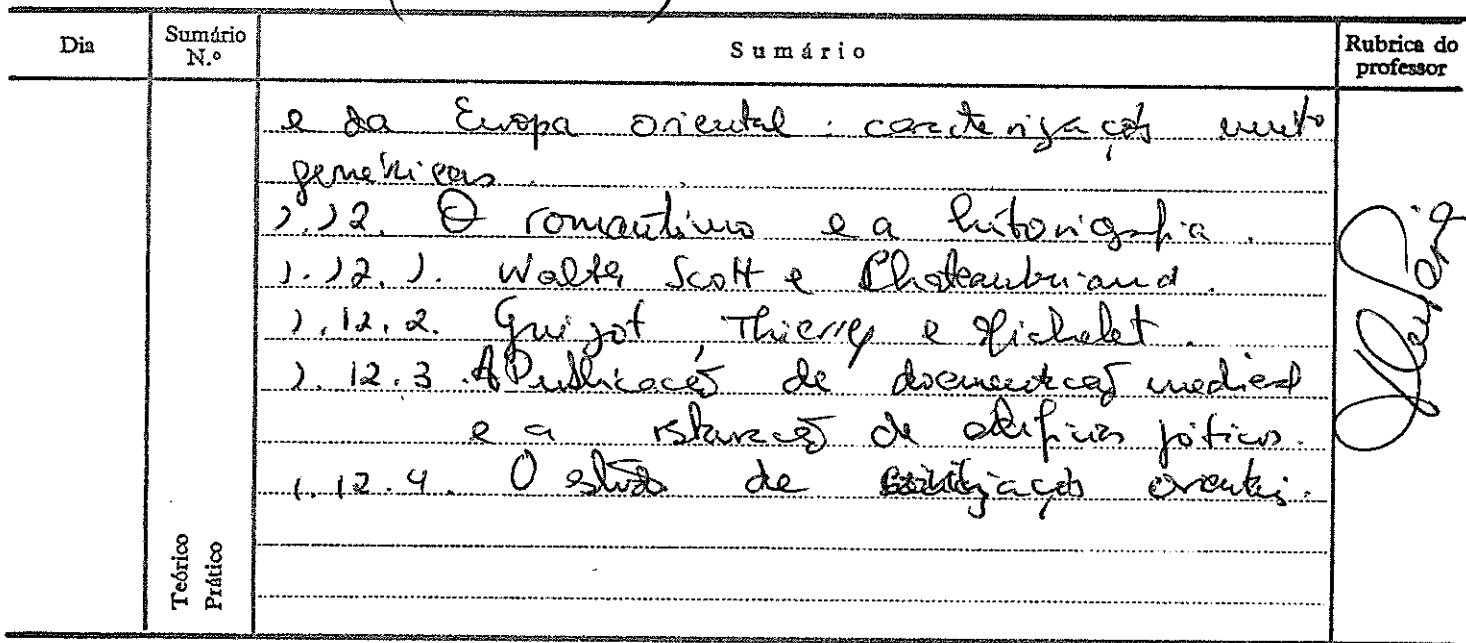 Dia
Sumário N.º
Sumário
Rubrica do professor
e da Europa oriental: caracterizações muito
genéricas.
1.12. O romantismo e a historiografia.
1.12.1. Walter Scott e Chateaubriand.
1.12.2. Guizot, Thierry e Michelet.
1.12.3. A Publicação de documentação medieval
e a restauração de edifícios góticos.
1.12.4. O estudo de civilizações orientais.
Teórico
Prático